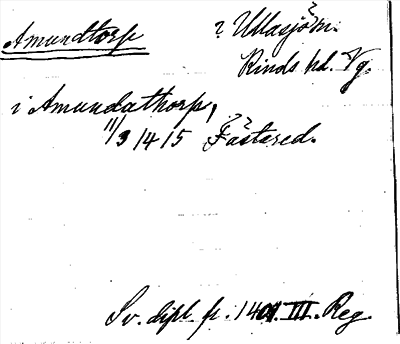 Amundtorp ? Ullasjö sn.
Kinds hd. Vg.
i Amundathorp,
11/3 1415 Fästered.
Sv. dipl. fr. 1401. III. Reg.